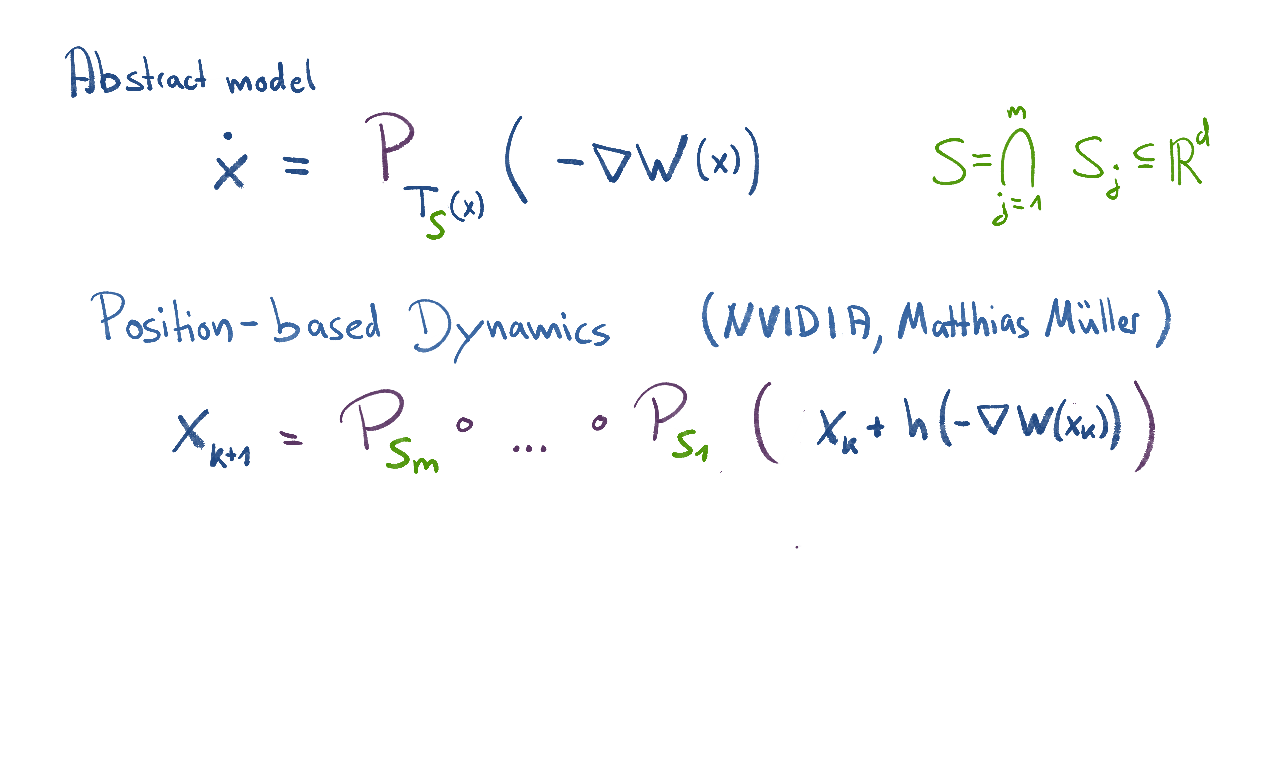 Abstract model
ẋ = P_{T_S(x)} ( −∇W(x) )    S = ⋂_{j=1}^{m} S_j ⊆ ℝ^d
Position-based Dynamics (NVIDIA, Matthias Müller)
x_{k+1} = P_{S_m} ∘ ... ∘ P_{S_1} ( x_k + h(−∇W(x_k)) )